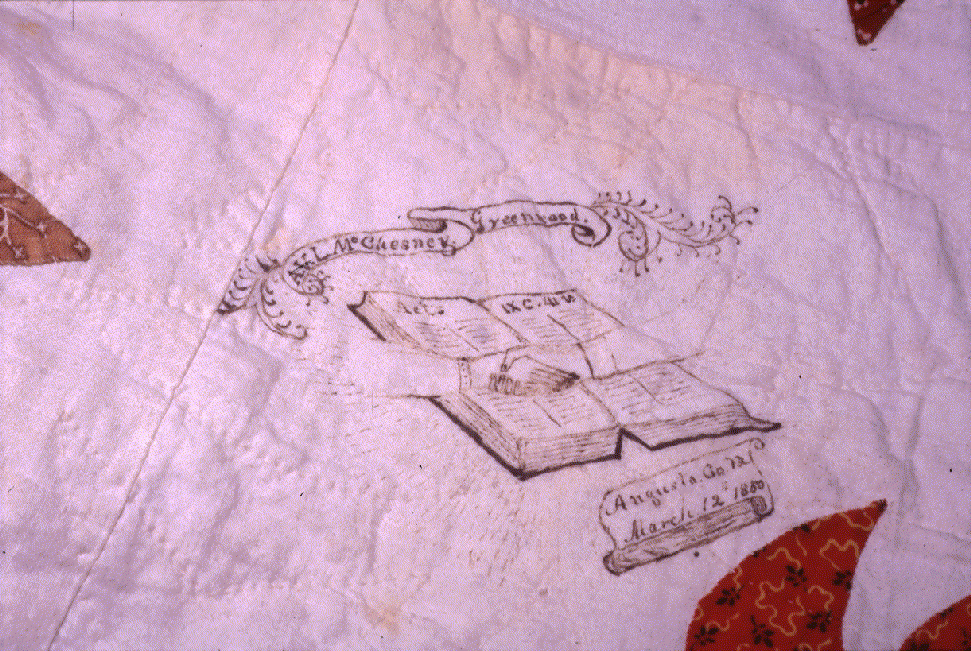 McChesney.
Greenwood.
Acts
IX C. 41 v
Augusta. Co
March 12 1850